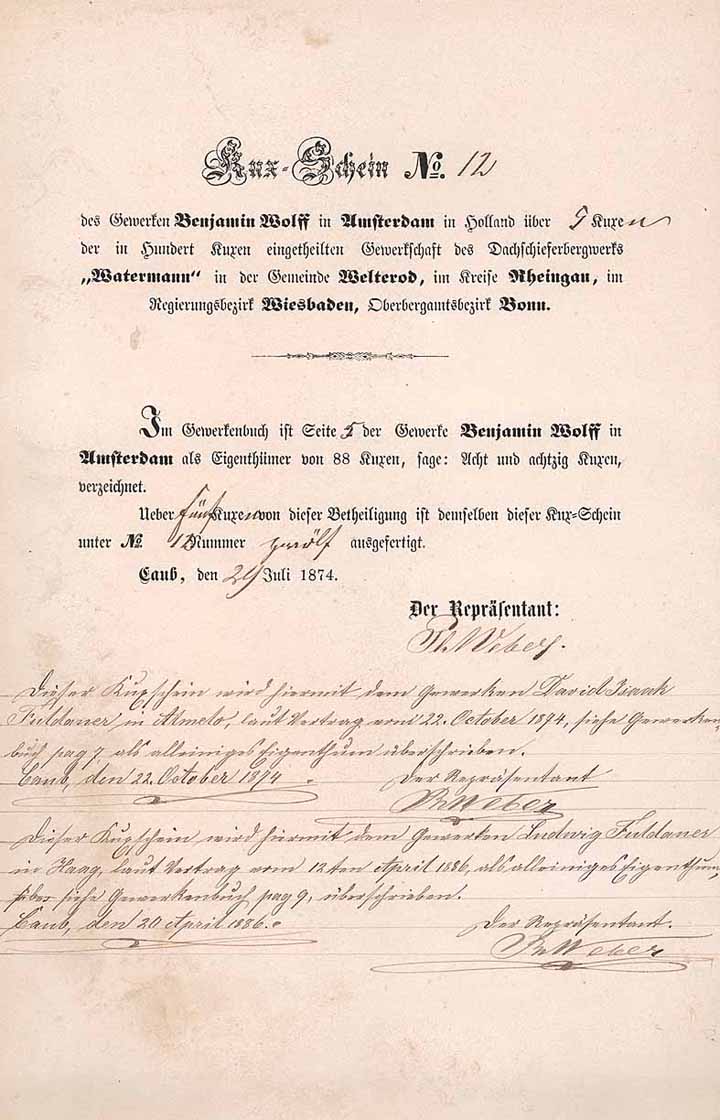 Kux-Schein No. 12
des Gewerken Benjamin Wolff in Amsterdam in Holland über 5 Kuxen
der in Hundert Kuxen eingetheilten Gewerkschaft des Dachschieferbergwerks
„Watermann“ in der Gemeinde Welterod, im Kreise Rheingau, im
Regierungsbezirk Wiesbaden, Oberbergamtsbezirk Bonn.
Im Gewerkenbuch ist Seite 5 der Gewerke Benjamin Wolff in
Amsterdam als Eigenthümer von 88 Kuxen, sage: Acht und achtzig Kuxen,
verzeichnet.
Ueber fünf Kuxen von dieser Betheiligung ist demselben dieser Kux-Schein
unter No 12 Nummer zwölf ausgefertigt.
Caub, den 29 Juli 1874.
Der Repräsentant:
Ph. Weber.
Dieser Kuxschein wird hiermit dem Gewerken David Isaak
Fuldauer in Almelo, laut Vertrag vom 22. October 1874, siehe Gewerken-
buch pag 7 als alleiniges Eigenthum überschrieben.
Caub, den 22. October 1874.
Der Repräsentant
Ph Weber
Dieser Kuxschein wird hiermit dem Gewerken Ludwig Fuldauer
in Haag, laut Vertrag vom 12ten April 1886, als alleiniges Eigenthum,
siehe Gewerkenbuch pag 9, überschrieben.
Caub, den 20 April 1886.
Der Repräsentant.
Ph Weber